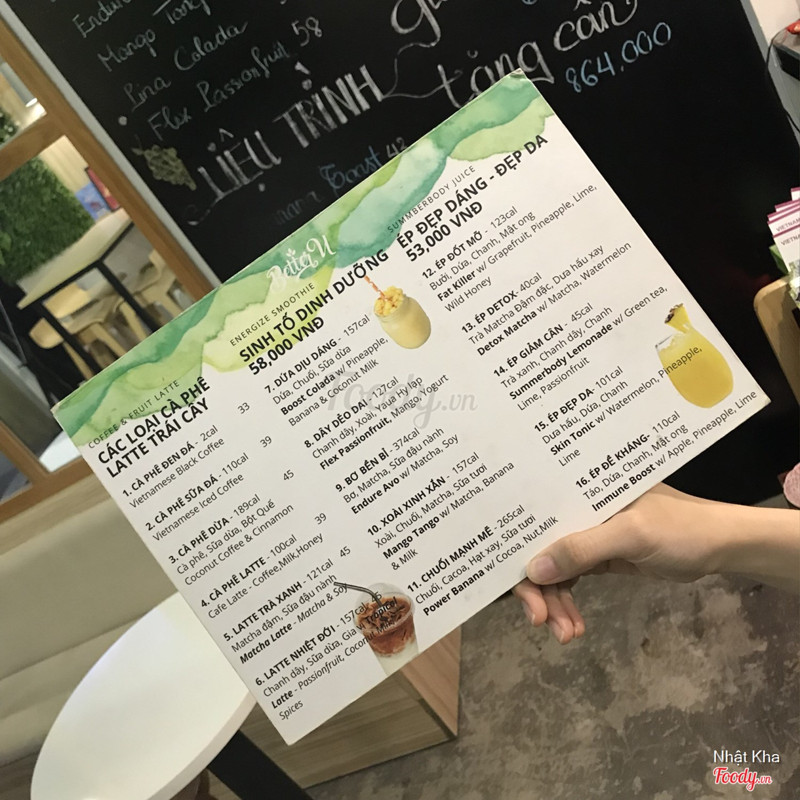 Mango Tang
Pina Colada
Flex Passionfruit 58
LIỆU TRÌNH
tăng cân
864,000
Toast 42
Better U
COFFEE & FRUIT LATTE
CÁC LOẠI CÀ PHÊ
LATTE TRÁI CÂY
1. CÀ PHÊ ĐEN ĐÁ - 2cal 33
Vietnamese Black Coffee
2. CÀ PHÊ SỮA ĐÁ - 110cal 39
Vietnamese Iced Coffee
3. CÀ PHÊ DỪA - 189cal 45
Cà phê, Sữa dừa, Bột Quế
Coconut Coffee & Cinnamon
4. CÀ PHÊ LATTE - 100cal 39
Cafe Latte - Coffee,Milk,Honey
5. LATTE TRÀ XANH - 121cal 45
Matcha đậm, Sữa đậu nành
Matcha Latte - Matcha & Soy
6. LATTE NHIỆT ĐỚI - 157cal 45
Chanh dây, Sữa dừa, Gia vị Tropical
Latte - Passionfruit, Coconut Milk &
Spices
ENERGIZE SMOOTHIE
SINH TỐ DINH DƯỠNG
58,000 VNĐ
7. DỪA DỊU DÀNG - 157cal
Dứa, Chuối, Sữa dừa
Boost Colada w/ Pineapple,
Banana & Coconut Milk
8. DÂY DẺO DAI - 127cal
Chanh dây, Xoài, Sữa Hy lạp
Flex Passionfruit, Mango, Yogurt
9. BƠ BỀN BỈ - 374cal
Bơ, Matcha, Sữa đậu nành
Endure Avo w/ Matcha, Soy
10. XOÀI XINH XẮN - 157cal
Xoài, Chuối, Matcha, Sữa tươi
Mango Tango w/ Matcha, Banana
& Milk
11. CHUỐI MẠNH MẼ - 265cal
Chuối, Cacoa, Hạt xay, Sữa tươi
Power Banana w/ Cocoa, Nut,Milk
SUMMBERBODY JUICE
ÉP ĐẸP DÁNG - ĐẸP DA
53,000 VNĐ
12. ÉP ĐỐT MỠ - 123cal
Bưởi, Dứa, Chanh, Mật ong
Fat Killer w/ Grapefruit, Pineapple, Lime,
Wild Honey
13. ÉP DETOX- 40cal
Trà Matcha Đậm đặc, Dưa hấu xay
Detox Matcha w/ Matcha, Watermelon
14. ÉP GIẢM CÂN - 45cal
Trà xanh, Chanh dây, Chanh
Summerbody Lemonade w/ Green tea,
Lime, Passionfruit
15. ÉP ĐẸP DA- 101cal
Dưa hấu, Dứa, Chanh
Skin Tonic w/ Watermelon, Pineapple,
Lime
16. ÉP ĐỀ KHÁNG- 110cal
Táo, Dứa, Chanh, Mật ong
Immune Boost w/ Apple, Pineapple, Lime
Foody.vn
VIETNAM
Nhật Kha
Foody.vn